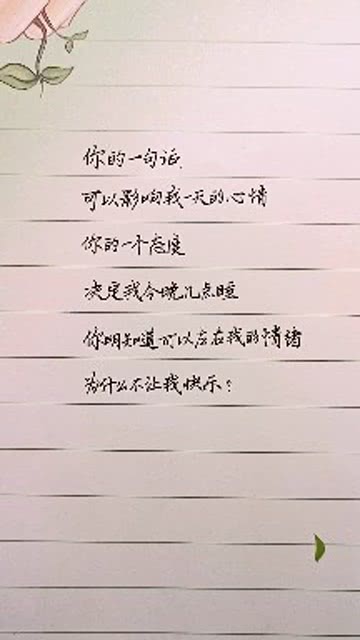 你的一句话
可以影响我一天的心情
你的一个态度
决定我今晚几点睡
你明知道可以左右我的情绪
为什么不让我快乐?